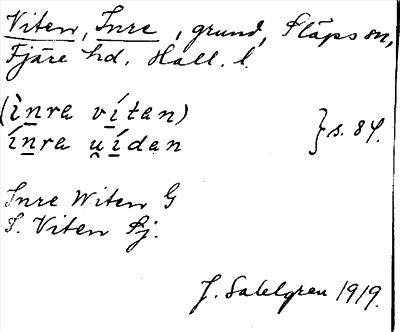 Viten, Inre, grund, Släps sn,
Fjäre hd. Hall. l.
(ìnra vítan)
ínra u̯ídan } s. 84.
Inre Witen G
I. Viten Sj.
J. Sahlgren 1919.